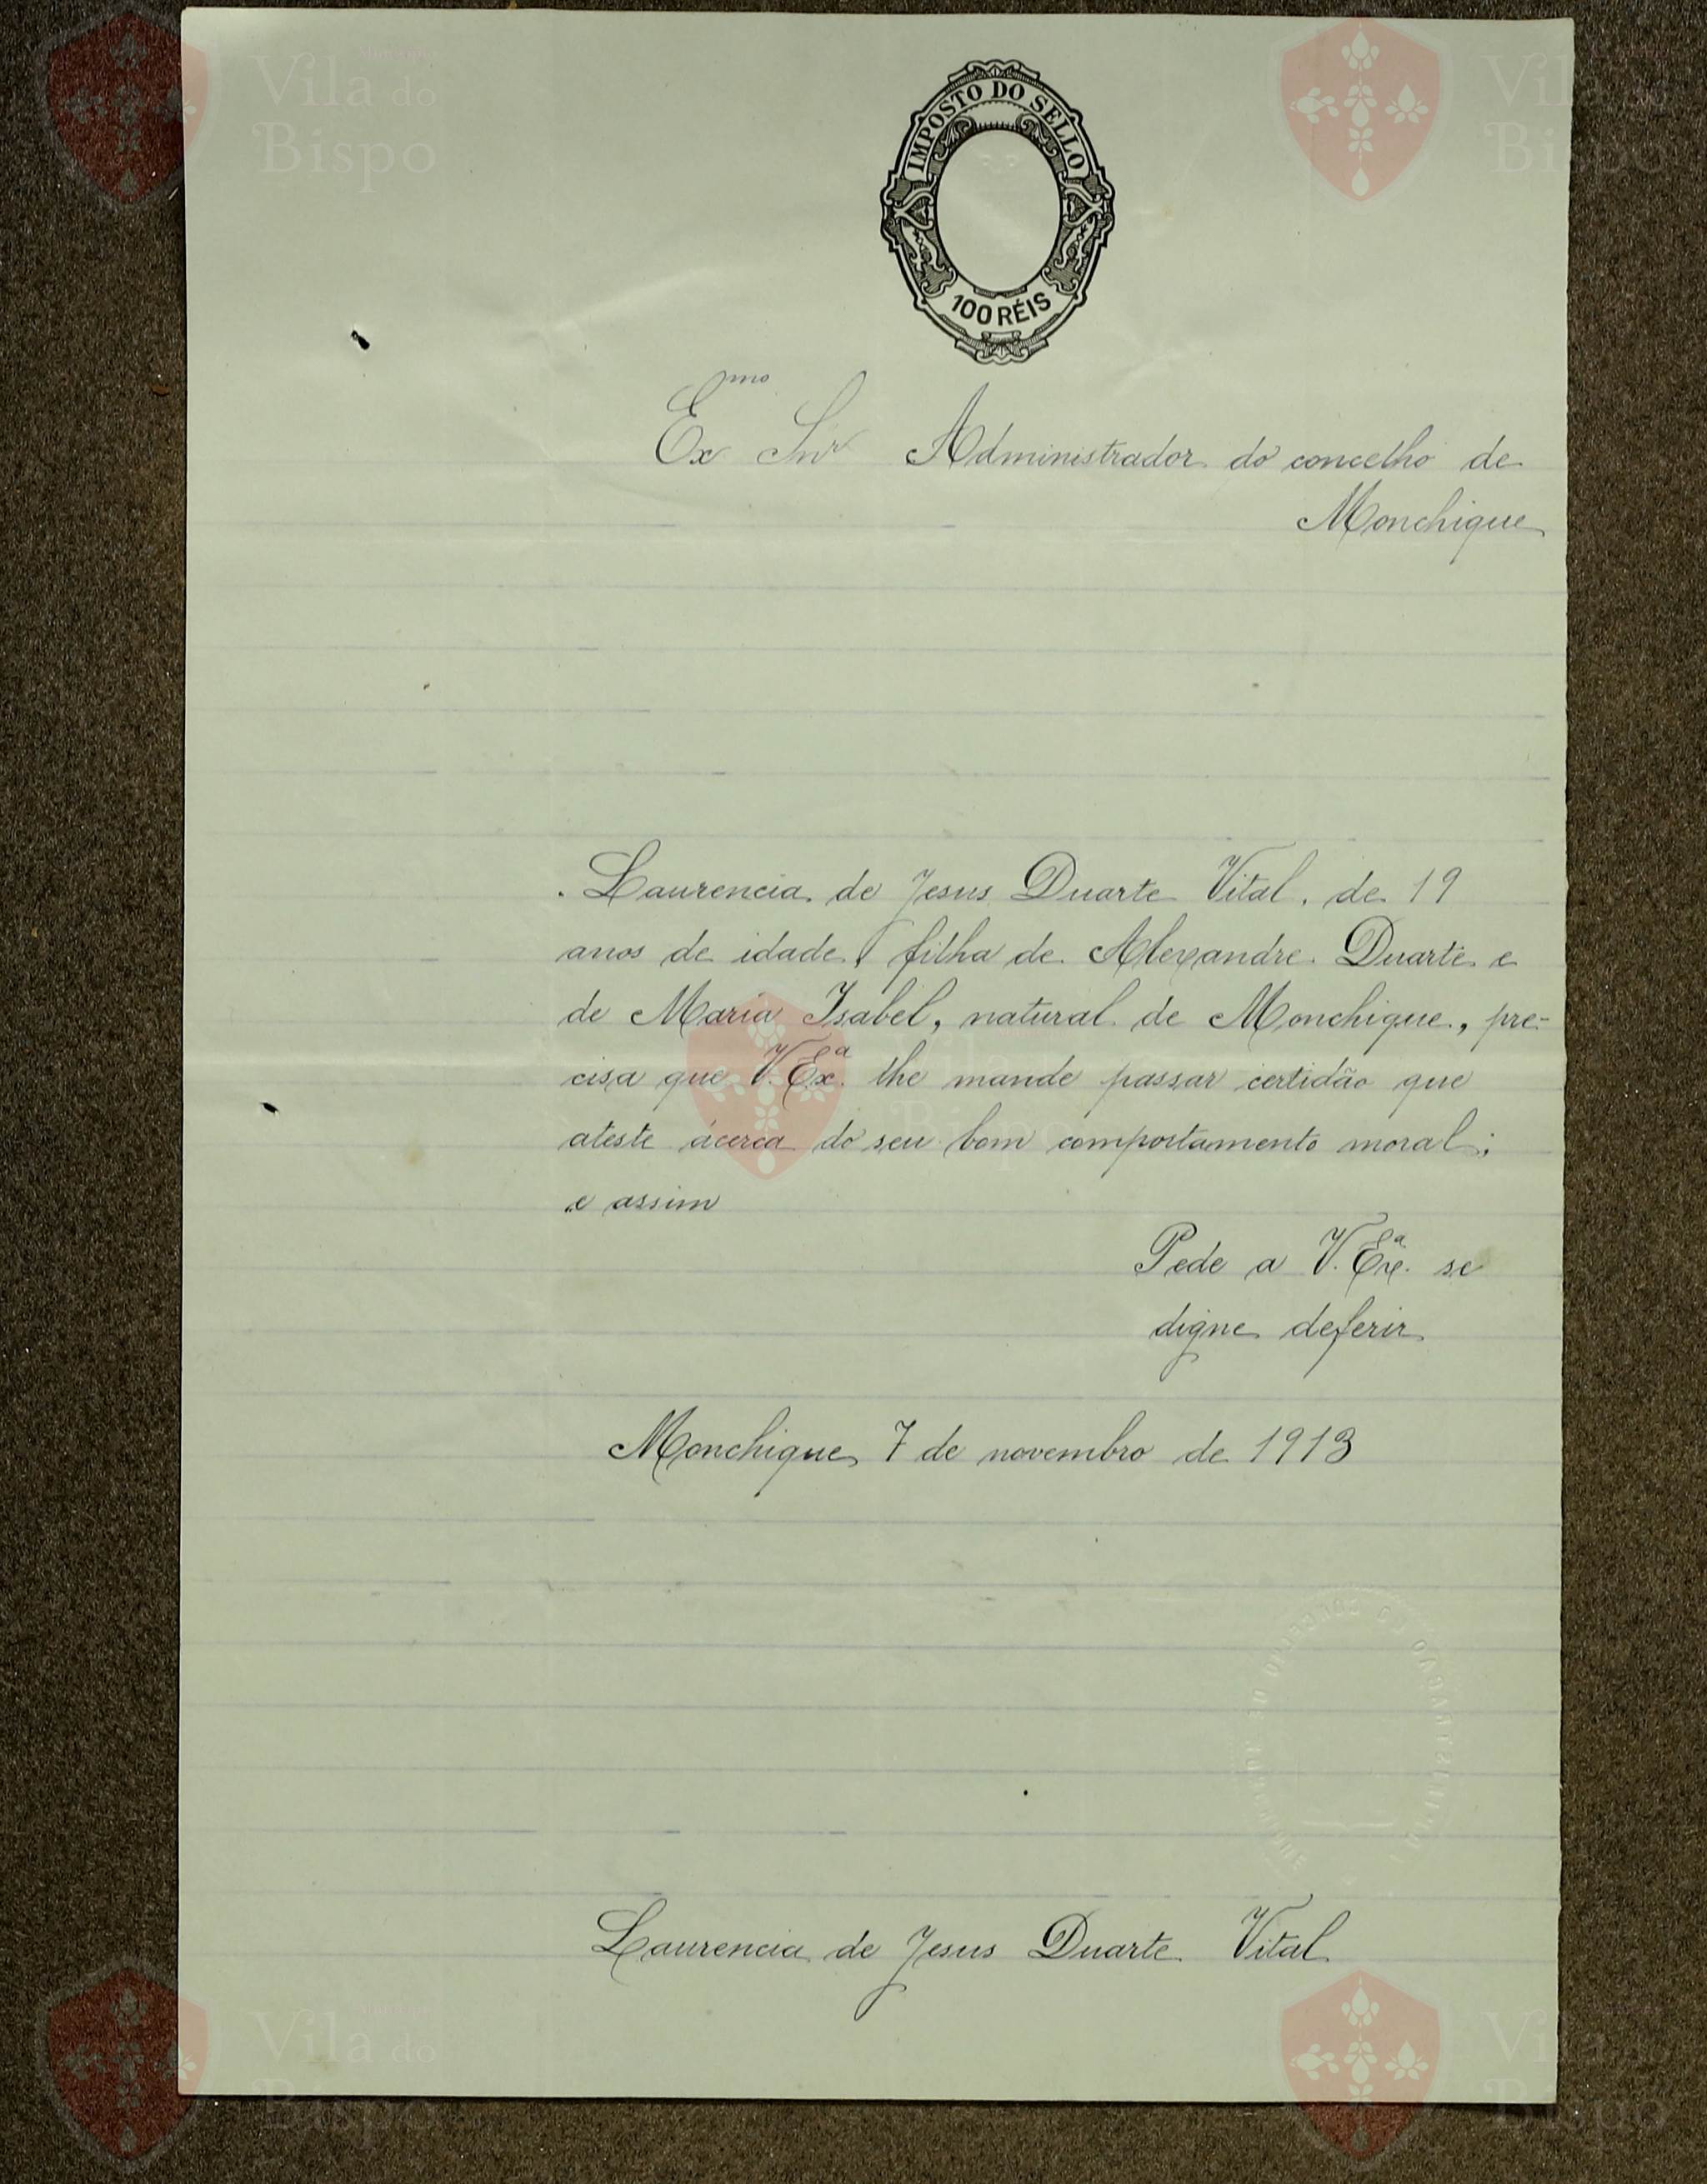 IMPOSTO DO SELLO
100 RÉIS
Ex.mo Snr Administrador do concelho de
Monchique
Laurencia de Jesus Duarte Vital, de 19
anos de idade, filha de Alexandre Duarte e
de Maria Isabel, natural de Monchique, pre-
cisa que V. Ex.ª lhe mande passar certidão que
ateste ácerca do seu bom comportamento moral;
e assim
Pede a V. Ex.ª se
digne deferir
Monchique, 7 de novembro de 1913
Laurencia de Jesus Duarte Vital
Vila do
Bispo